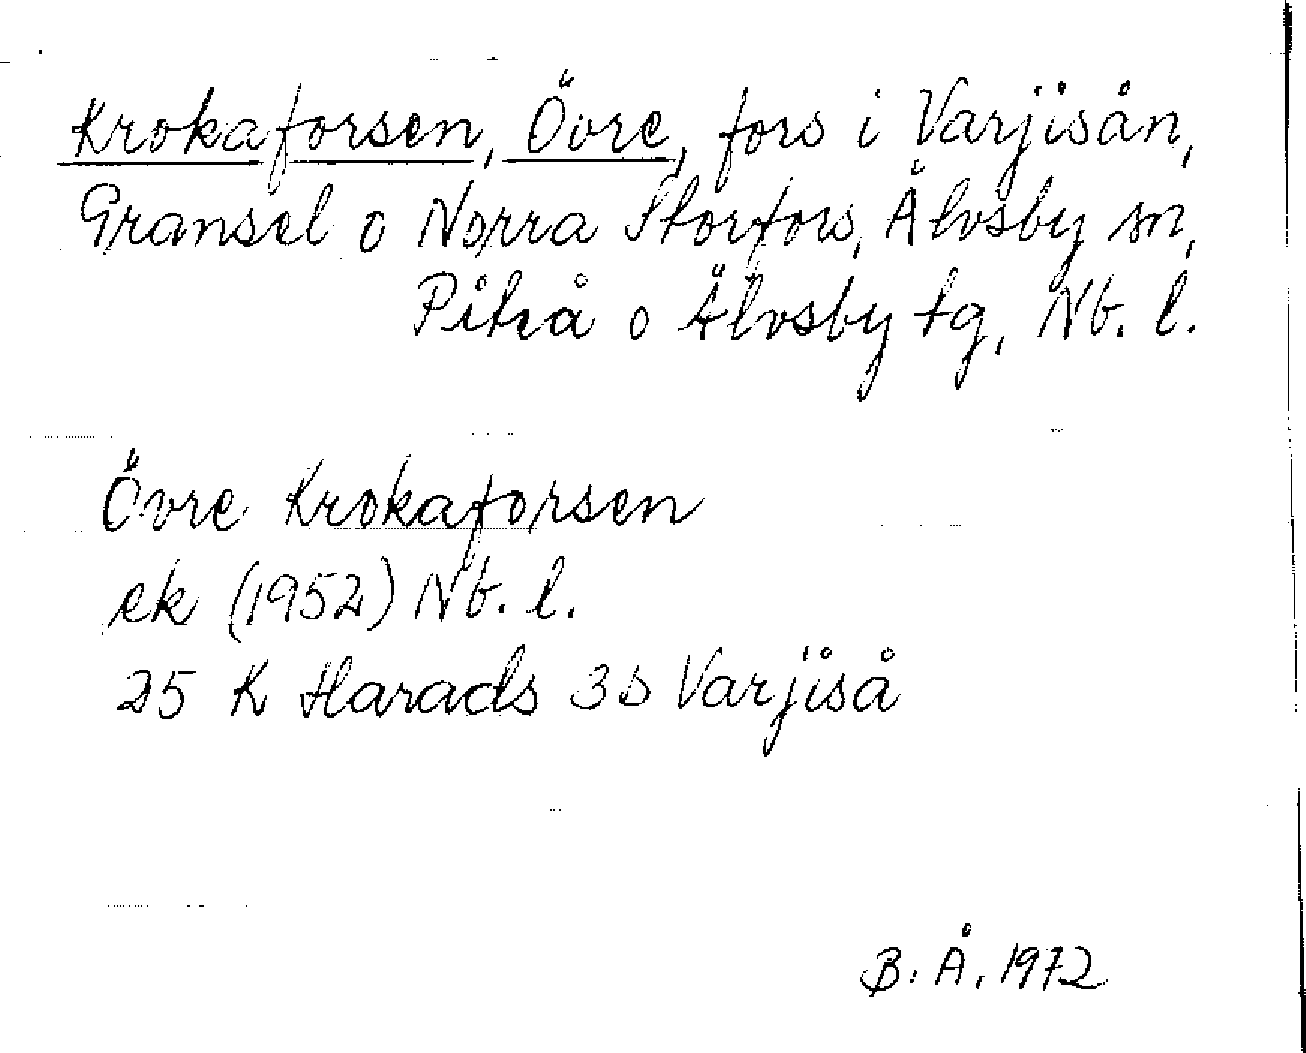 Krokaforsen, Övre, fors i Varjisån,
Gransel o Norra Storfors, Älvsby sn,
Piteå o Älvsby tg, Nb. l.
Övre Krokaforsen
ek (1952) Nb. l.
25 K Harads 3 b Varjiså
B. Å. 1972